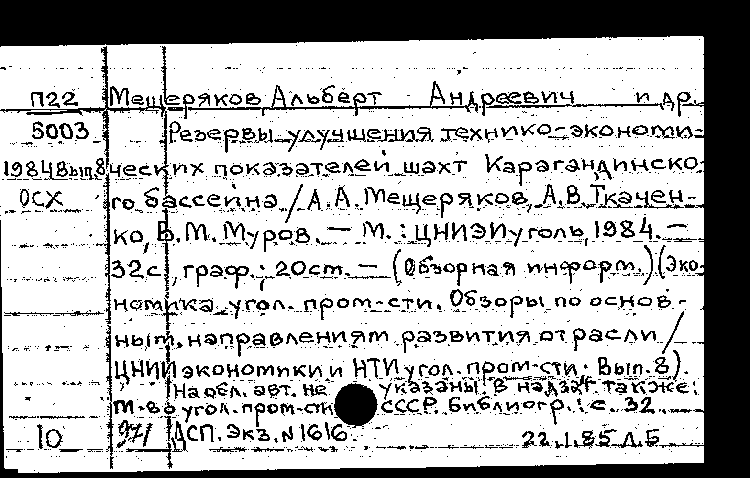 П22 Мещеряков, Альберт Андреевич и др.
5003 Резервы улучшения технико-экономи-
1984 Вып.8 ческих показателей шахт Карагандинско-
ОСХ го бассейна / А.А. Мещеряков, А.В. Ткачен-
ко, В.М. Муров. — М. : ЦНИЭИуголь, 1984. —
32 с., граф.; 20 см. — (Обзорная информ.) (Эко-
номика угол. пром-сти. Обзоры по основ-
ным направлениям развития отрасли /
ЦНИИ экономики и НТИ угол. пром-сти. Вып. 8).
На обл. авт. не указаны. В надзаг. также:
М-во угол. пром-сти СССР. Библиогр.: с. 32.
10 971 ДСП. Экз. N 1616. 22.1.85 Л.Б